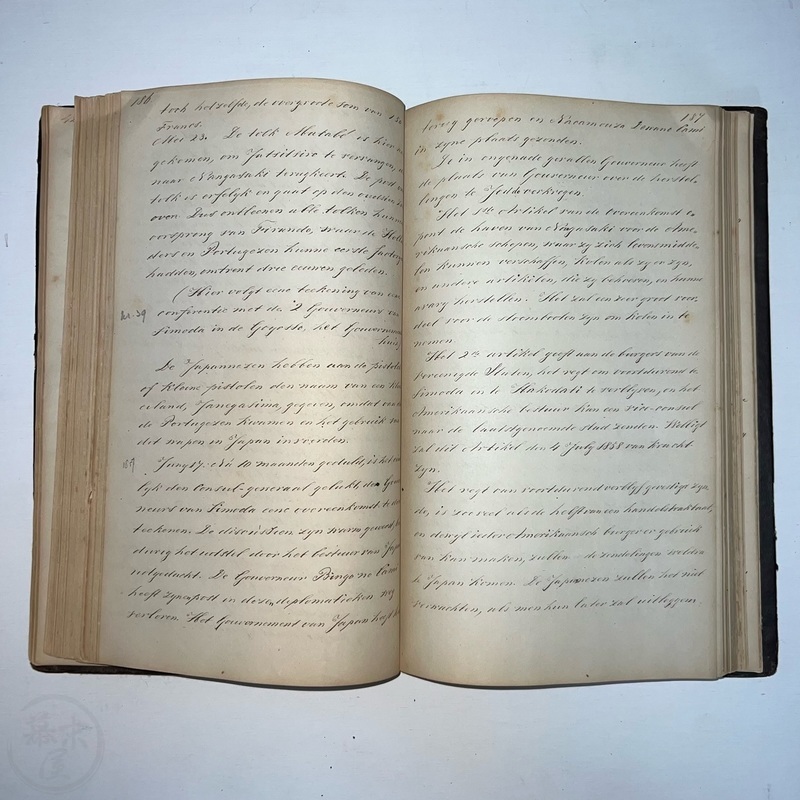 186
toch hetzelfde, de overgroote som van 150
Francs.
Mei 23. De tolk Matabé is hier
gekomen, om Tatsitsiro te vervangen,
naar Nangasaki terugkeerde. De post
tolk is erfelijk en gaat op den oudsten
over. Dus ontleenen alle tolken hunnen
oorsprong van Firando, waar de Hol
ders en Portugezen hunne eerste factory
hadden, omtrent drie eeuwen geleden.
(Hier volgt eene teekening van
conferentie met de 2 Gouverneurs van
Simoda in de Goyosso, het Gouvernements
huis,
De Japannezen hebben aan de pistolen
of kleine pistolen den naam van een klein
eiland, Tanegasima, gegeven, omdat
de Portugezen kwamen en het gebruik
dit wapen in Japan invoerden.
Juny 17. Na 10 maanden geduld, is het
lyk den Consul-generaal gelukt, de Gouver
neurs van Simoda eene overeenkomst te doen
teekenen. De discussien zyn warm geweest,
dwerg het uitstel door het bestuur van Japan
uitgedacht. De Gouverneur Bingo no Cami
heeft zynen post in dezen diplomatieken
verloren. Het Gouvernement van Japan heeft
187
terug geroepen en Nacamoura Denano Cami
in zyne plaats gezonden.
De in ongenade gevallen Gouverneur heeft
de plaats van Gouverneur over de herstel-
lingen te Jeddo verkregen.
Het 1ste Artikel van de overeenkomst
pent de haven van Nangasaki voor de Ame
rikaansche schepen, waar zy zich levensmidde-
len kunnen verschaffen, kolen als zy er zyn,
en andere artikelen, die zy behoeven, en hunne
avary herstellen. Het zal een zeer groot voor-
deel voor de steembooten zyn om kolen in te
nemen.
Het 2de artikel geeft aan de burgers van de
vereenigde Staten, het regt om voortdurend te
Simoda en te Hakodati te verblyven, en het
Amerikaansche bestuur kan een vice-consul
naar de laatstgenoemde stad zenden.
zal dit Artikel den 4 July 1858 van kracht
zyn.
Het regt van voortdurend verblyf gevestigd zyn-
de, is zooveel als de helft van een handelstraktaat,
en dewyl ieder Amerikaansch burger er gebruik
van kan maken, zullen de zendelingen weldra
te Japan komen. De Japannezen zullen het niet
verwachten, als men hun later zal uitleggen.